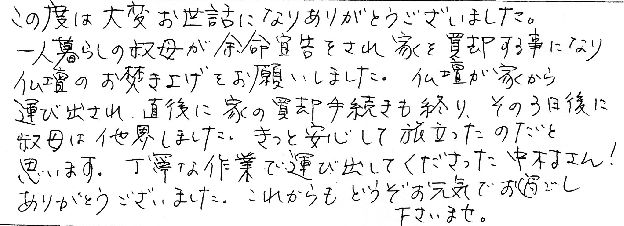 この度は大変お世話になりありがとうございました。
一人暮らしの叔母が余命宣告をされ家を買却する事になり
仏壇のお焚き上げをお願いしました。仏壇が家から
運び出され、直後に家の買却手続きも終り、その3日後に
叔母は他界しました。きっと安心して旅立ったのだと
思います。丁寧な作業で運び出してくださった中村さん!
ありがとうございました。これからもどうぞお元気でお過ごし
下さいませ。